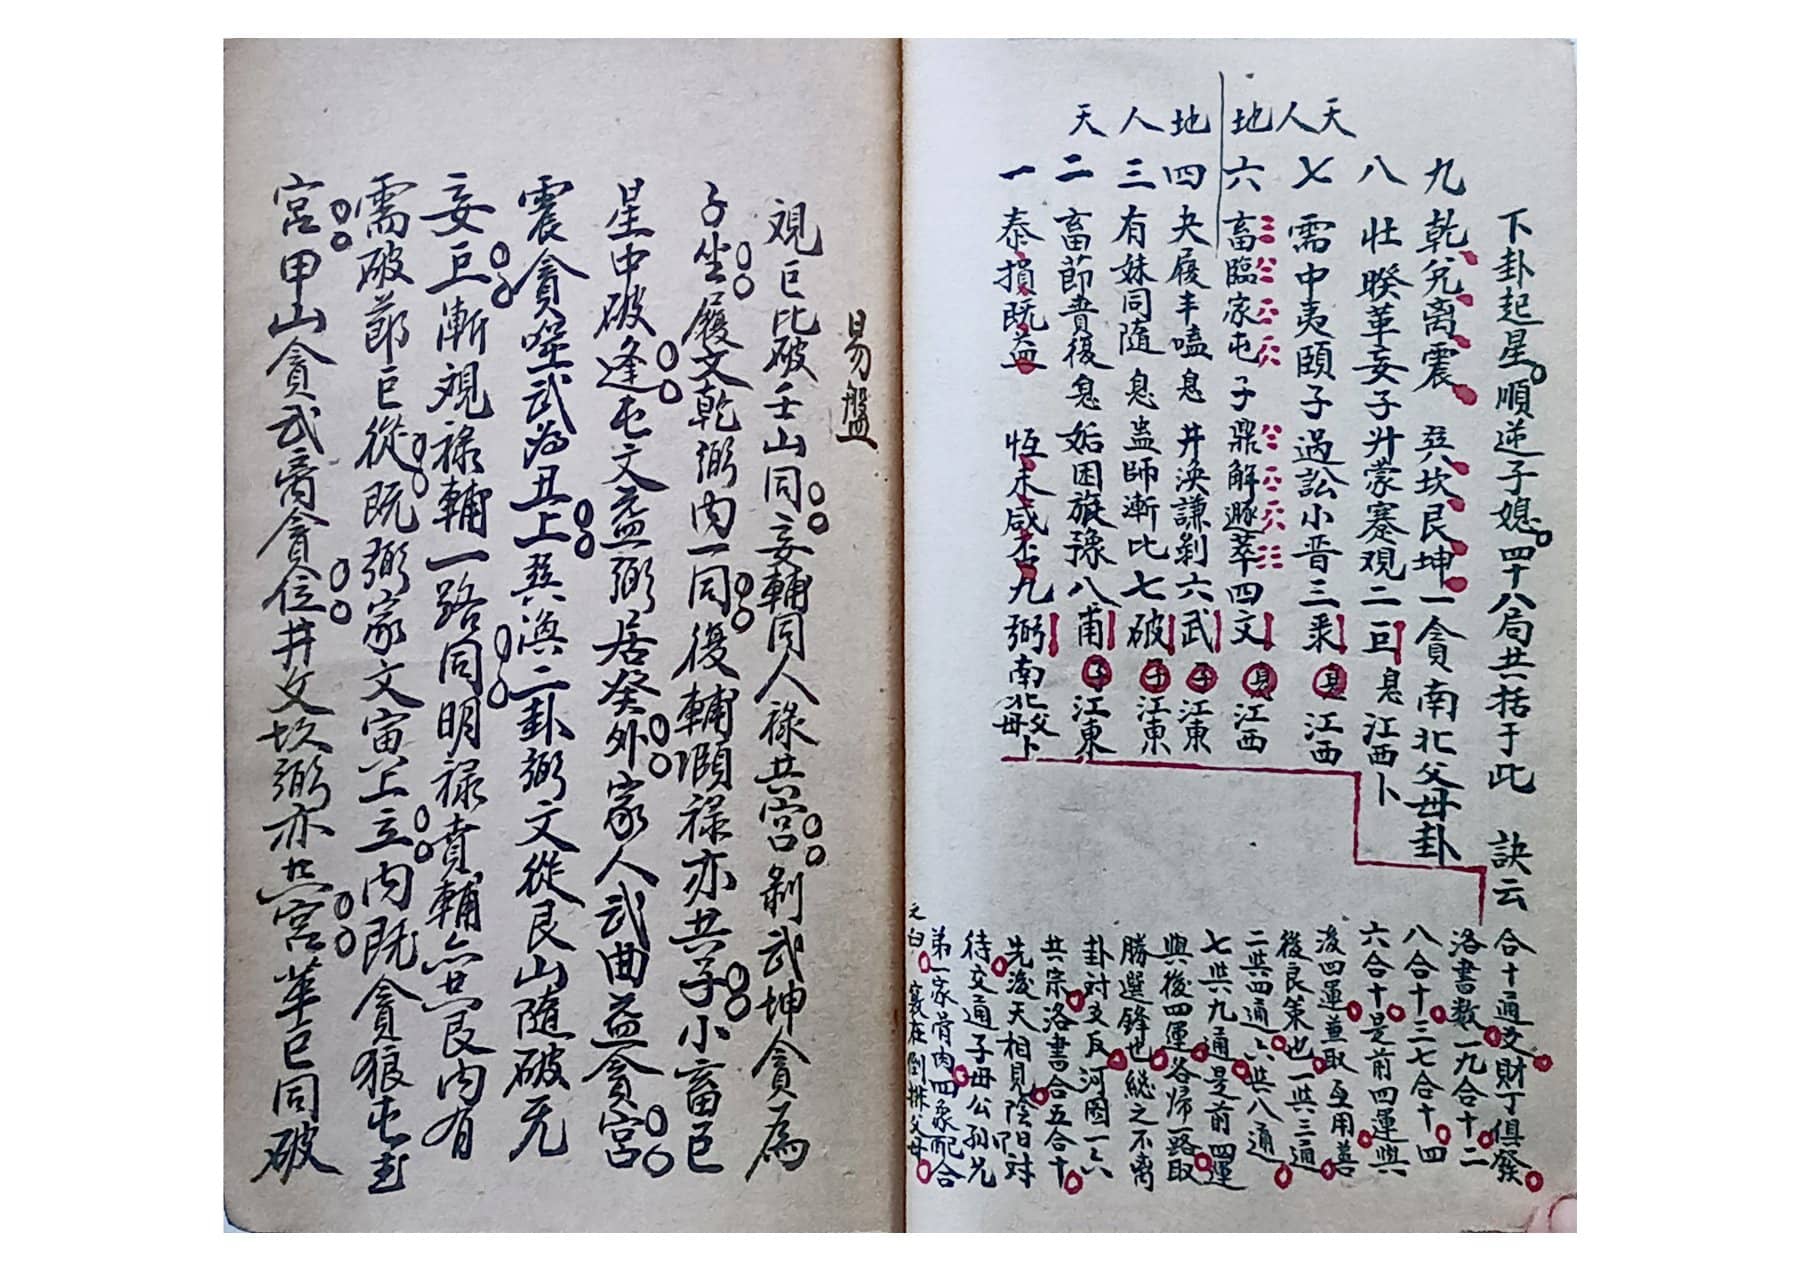 天人地地人天
下卦起星順逆子媳四十八局共括于此 訣云
九 乾兌離震 巽坎艮坤一貪南北父母卦
八 壯睽革妄子升蒙蹇观二巨息江西卜
七 需中夷頤子過訟小晋三录息江西
六 畜臨家屯子鼎解遯萃四文息江西
四 夬履丰嗑息井渙謙剝六武子江東
三 有妹同随息蛊師漸比七破子江東
二 畜節賁復息姤困旅豫八甫子江東
一 泰損既益 恆未咸否九弼南北父母卜
合十通爻財丁俱發
洛書数一九合十二
八合十三七合十四
六合十是前四運與
後四運兼取互用善
後良策也一與三通
二與四通六與八通
七與九通是前四運
與後四運各帰一路取
勝選鋒也總之不离
卦对爻反河图一六
共宗洛書合五合十
先後天相見陰陽对
待交通子母公孙兄
弟一家骨肉四象配合
之白 在倒排父母
易盤
观巨比破壬山同妄輔同人祿共宫剝武坤貪為
子坐履文乾弼内一同復輔頤祿亦共子小畜巨
星中破逢屯文益弼居癸外家人武曲益貪宫
震貪噬武为丑上巽渙二卦弼文從艮山隨破无
妄巨漸观祿輔一路同明祿賁輔亦共艮内有
需破節巨從既弼家文寅上立内既貪狼屯
宫甲山貪武 貪位井文坎弼亦共宫革巨同破